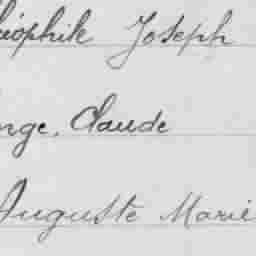 éophile Joseph
nge, Claude
Auguste Marie